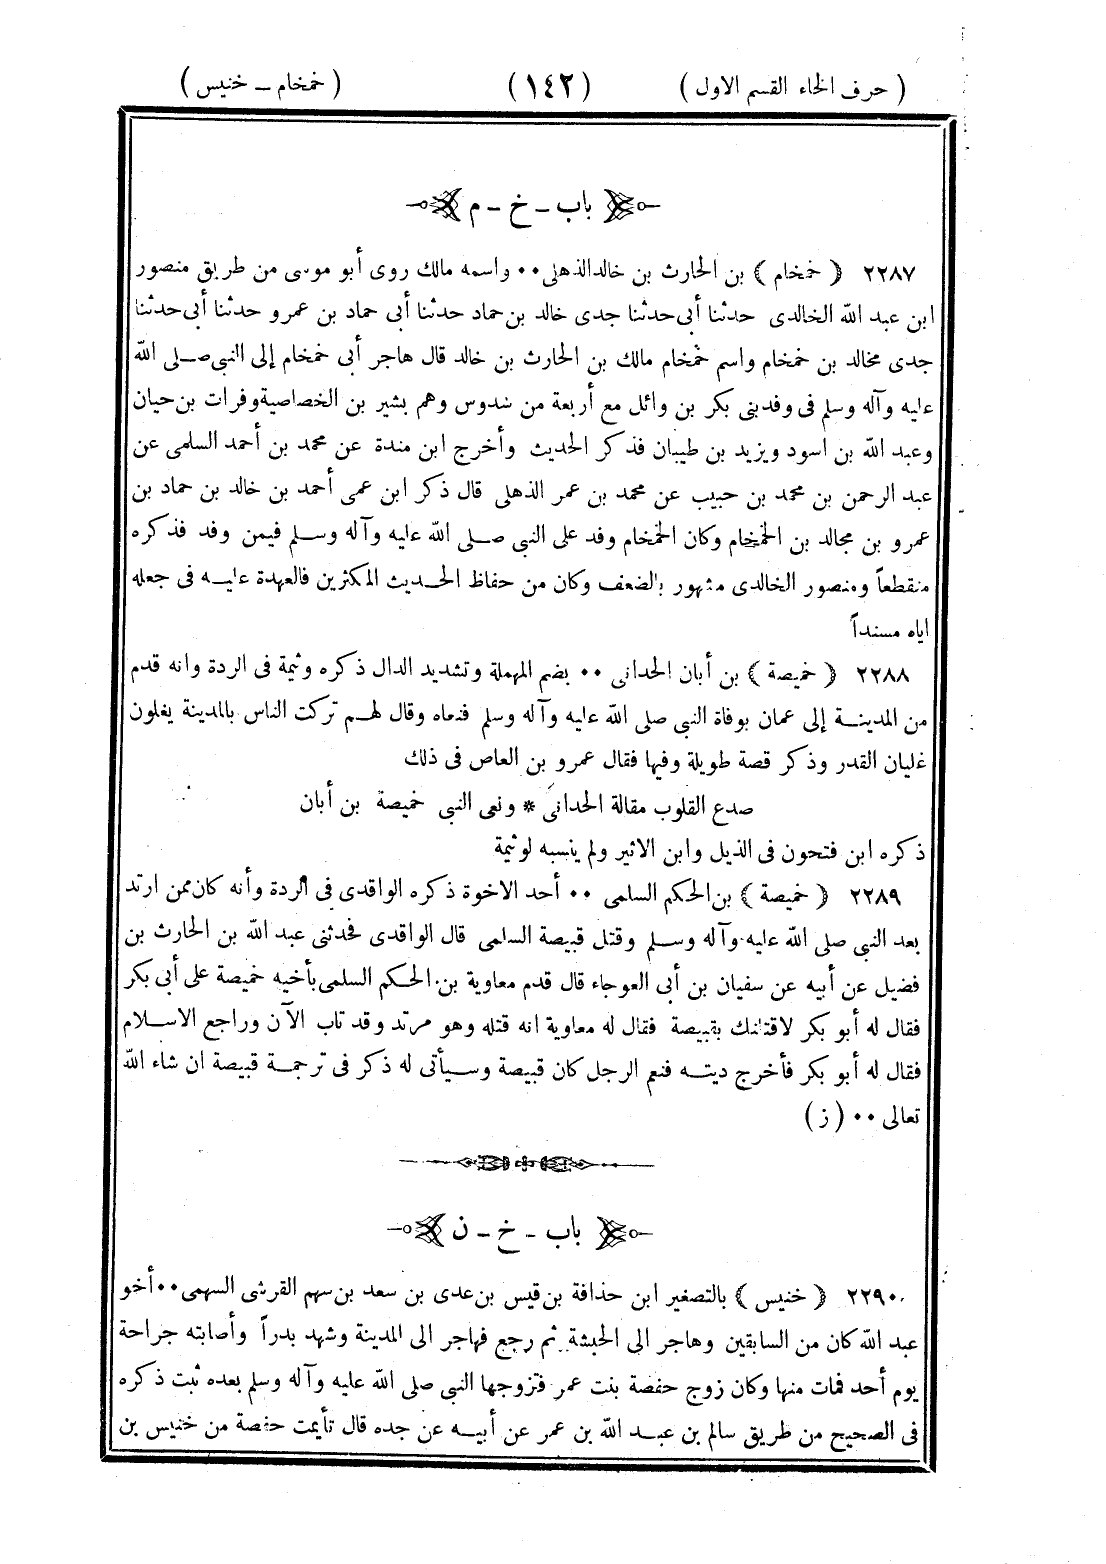 ( حرف الخاء القسم الاول ) (١٤٢) ( خمخام ــ خنيس )
باب ـ خ ـ م
٢٢٨٧ ﴿ خمخام ﴾ بن الحارث بن خالد الذهلى ٠٠ واسمه مالك روى أبو موسى من طريق منصور
ابن عبد الله الخالدى حدثنا أبى حدثنا جدى خالد بن حماد حدثنا أبى حماد بن عمرو حدثنا أبى حدثنا
جدى مخالد بن خمخام واسم خمخام مالك بن الحارث بن خالد قال هاجر أبى خمخام إلى النبى صلى الله
عليه وآله وسلم فى وفد بنى بكر بن وائل مع أربعة من سدوس وهم بشير بن الخصاصية وفرات بن حيان
وعبد الله بن اسود ويزيد بن ظبيان فذكر الحديث وأخرج ابن مندة عن محمد بن أحمد السلمى عن
عبد الرحمن بن محمد بن حبيب عن محمد بن عمر الذهلى قال ذكر ابن عمى أحمد بن خالد بن حماد بن
عمرو بن مجالد بن الخمخام وكان الخمخام وفد على النبى صلى الله عليه وآله وسلم فيمن وفد فذكره
منقطعاً ومنصور الخالدى مشهور بالضعف وكان من حفاظ الحديث المكثرين فالعهدة عليه فى جعله
اياه مسنداً
٢٢٨٨ ﴿ خميصة ﴾ بن أبان الحدانى ٠٠ بضم المهملة وتشديد الدال ذكره وثيمة فى الردة وانه قدم
من المدينة إلى عمان بوفاة النبى صلى الله عليه وآله وسلم فنعاه وقال لهم تركت الناس بالمدينة يغلون
غليان القدر وذكر قصة طويلة وفيها فقال عمرو بن العاص فى ذلك
صدع القلوب مقالة الحدانى * ونعى النبى خميصة بن أبان
ذكره ابن فتحون فى الذيل وابن الاثير ولم ينسبه لوثيمة
٢٢٨٩ ﴿ خميصة ﴾ بن الحكم السلمى ٠٠ أحد الاخوة ذكره الواقدى فى الردة وأنه كان ممن ارتد
بعد النبى صلى الله عليه وآله وسلم وقتل قبيصة السلمى قال الواقدى فحدثنى عبد الله بن الحارث بن
فضيل عن أبيه عن سفيان بن أبى العوجاء قال قدم معاوية بن الحكم السلمى بأخيه خميصة على أبى بكر
فقال له أبو بكر لاقتلنك بقبيصة فقال له معاوية انه قتله وهو مرتد وقد تاب الآن وراجع الاسلام
فقال له أبو بكر فأخرج ديته فنعم الرجل كان قبيصة وسيأتى له ذكر فى ترجمة قبيصة ان شاء الله
تعالى ٠٠ ( ز )
باب ـ خ ـ ن
٢٢٩٠ ﴿ خنيس ﴾ بالتصغير ابن حذافة بن قيس بن عدى بن سعد بن سهم القرشى السهمى ٠٠ أخو
عبد الله كان من السابقين وهاجر الى الحبشة ثم رجع فهاجر الى المدينة وشهد بدراً وأصابته جراحة
يوم أحد فمات منها وكان زوج حفصة بنت عمر فتزوجها النبى صلى الله عليه وآله وسلم بعده ثبت ذكره
فى الصحيح من طريق سالم بن عبد الله بن عمر عن أبيه عن جده قال تأيمت حفصة من خنيس بن